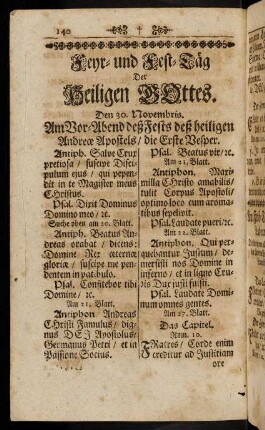 140
Feyr- und Fest-Täg
Der
Heiligen GOttes.
Den 30. Novembris.
Am Vor-Abend deß Fests deß heiligen
Andreæ Apostels / die Erste Vesper.
Antiph. Salve Crux
pretiosa / suscipe Disci-
pulum ejus / qui pepen-
dit in te Magister meus
CHristus.
Psal. Dixit Dominus
Domino meo / ꝛc.
Suche oben am 20. Blatt.
Antiph. Beatus An-
dreas orabat / dicens:
Domine Rex æternæ
gloriæ / suscipe me pen-
dentem in patibulo.
Psal. Confitebor tibi
Domine / ꝛc.
Am 21. Blatt.
Antiphon Andreas
CHristi Famulus / dig-
nus DEI Apostolus /
Germanus Petri / et in
Passione Socius.
Psal. Beatus vir / ꝛc.
Am 21. Blatt.
Antiphon. Maxi-
milla Christo amabilis /
tulit Corpus Apostoli /
optimo loco cum aroma-
tibus sepelivit.
Psal. Laudate pueri / ꝛc.
Am 22. Blatt.
Antiphon. Qui per-
sequebantur Justum / de-
mersisti nos Domine in
inferno / et in ligno Cru-
cis Dux justi fuisti.
Psal. Laudate Domi-
num omnes gentes.
Am 27. Blatt.
Das Capitel.
Rom. 10.
FRatres / Corde enim
creditur ad Justitiam
ore